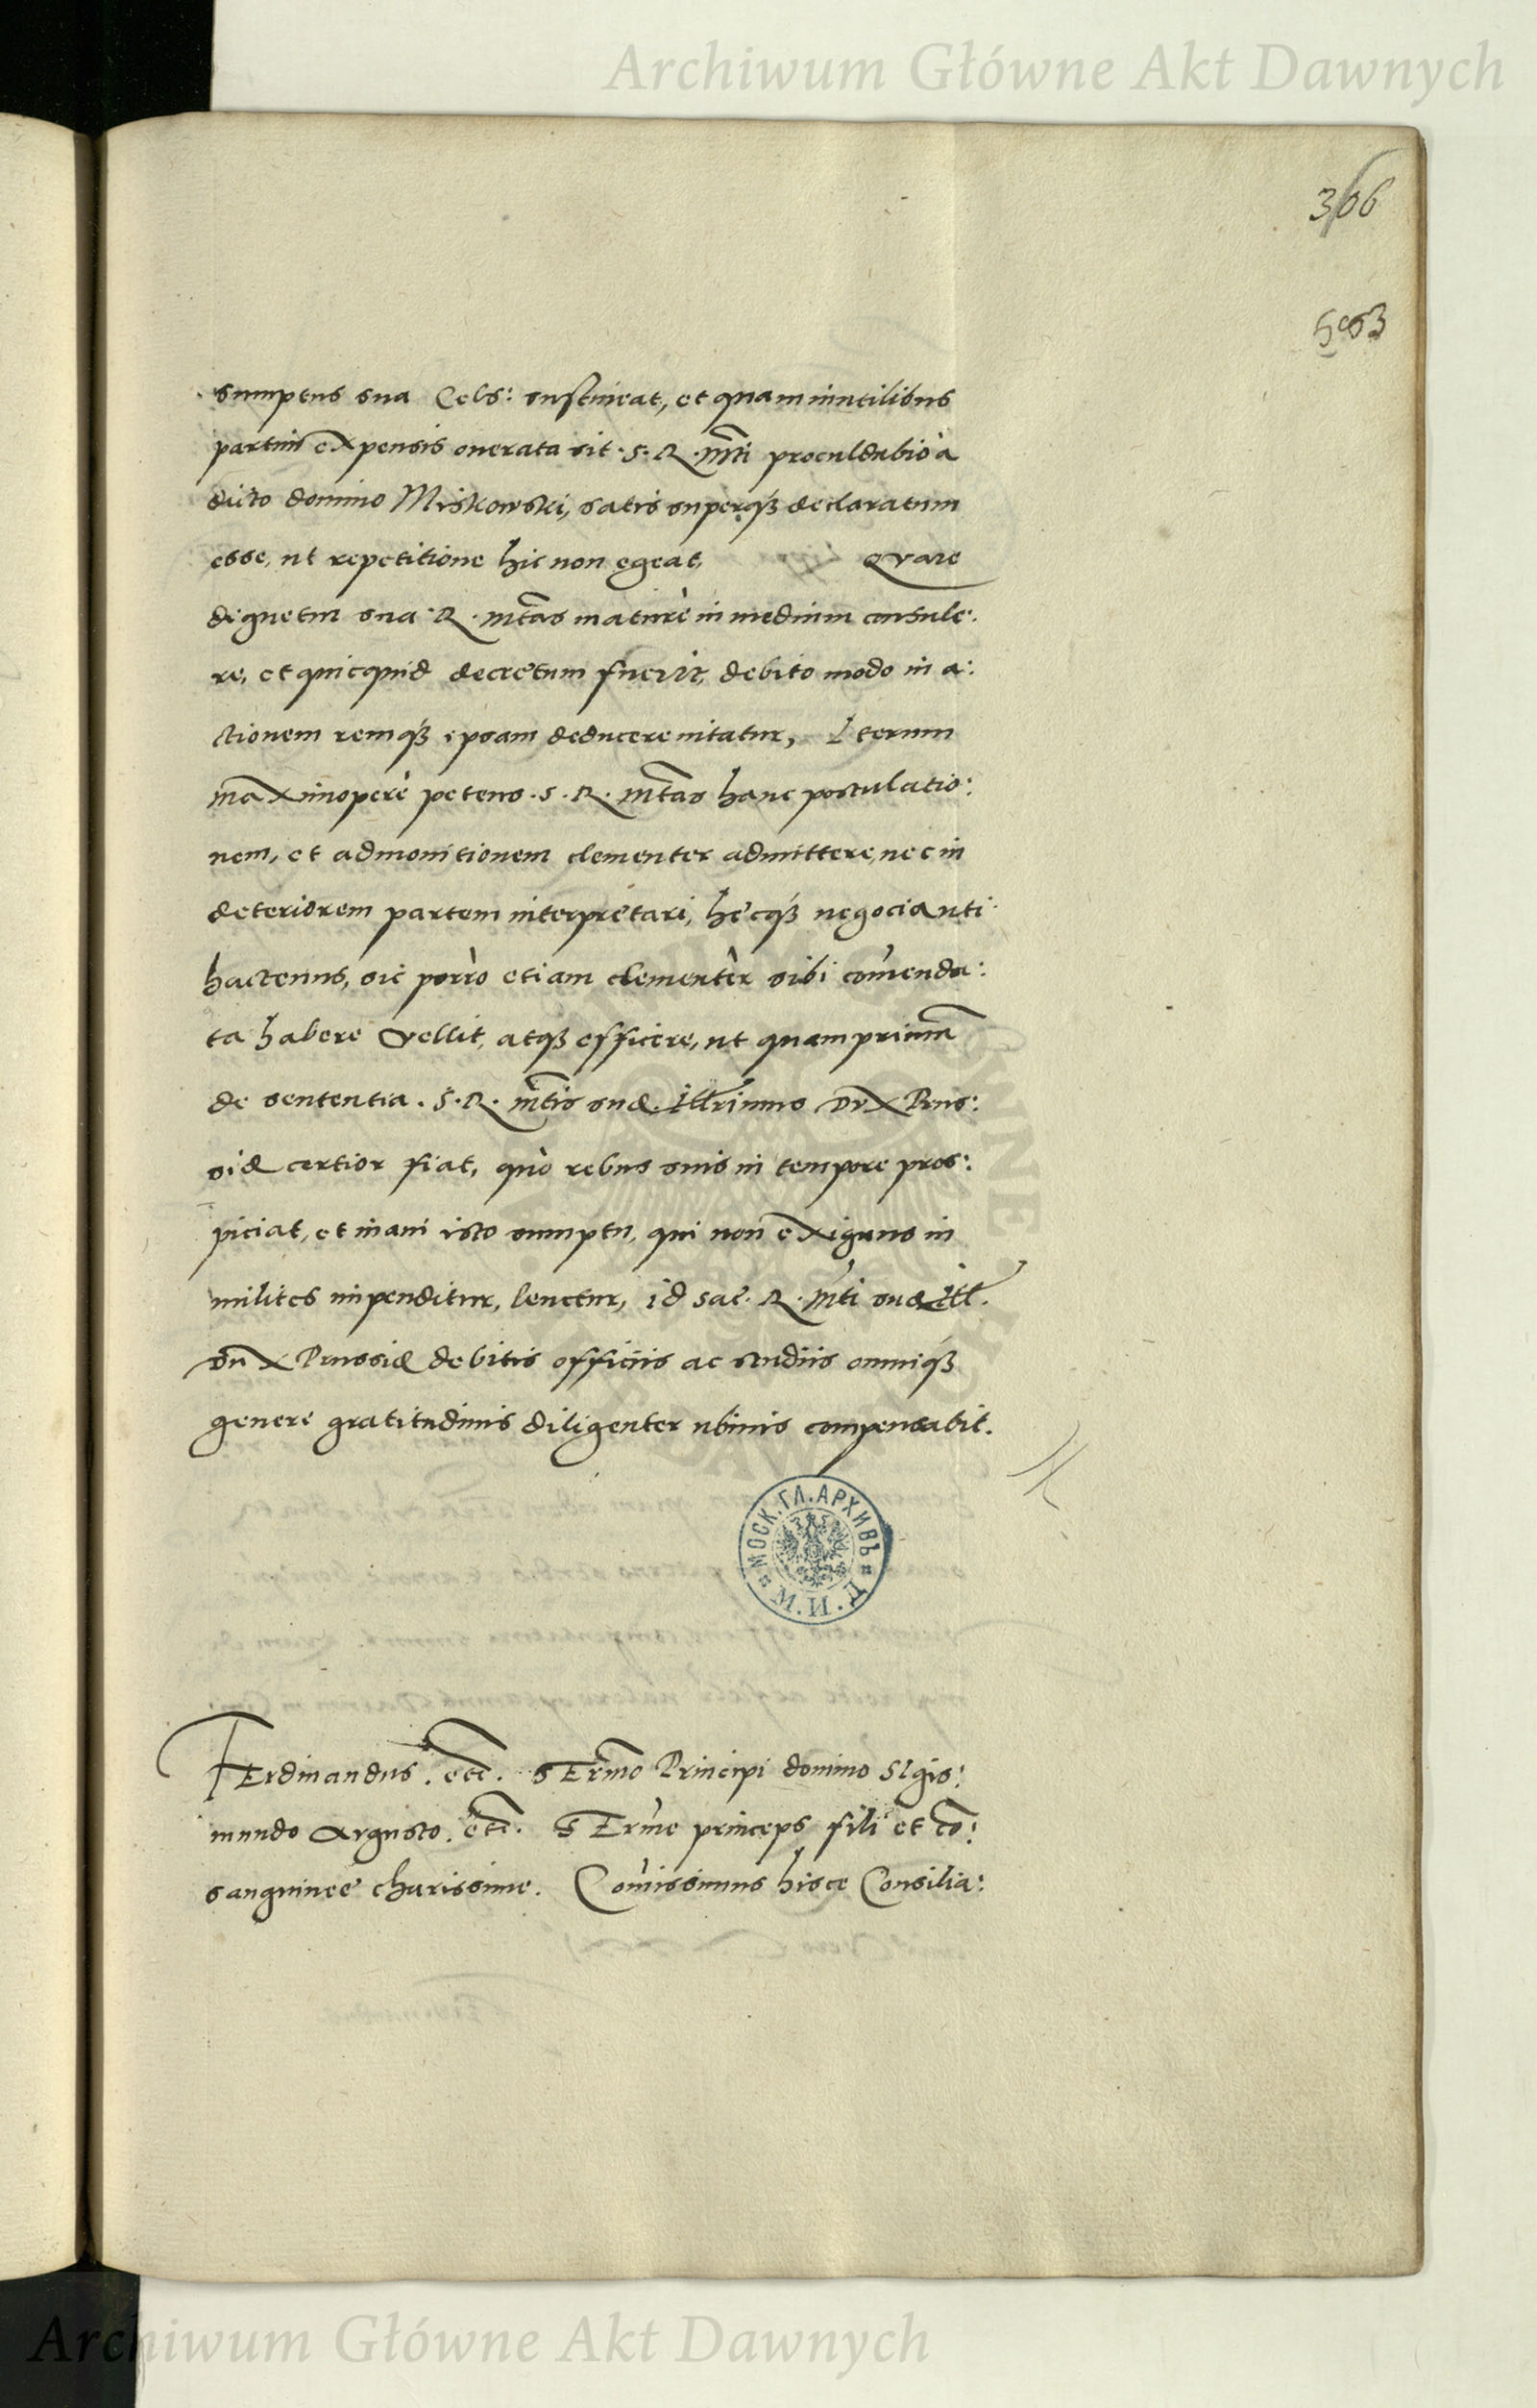 Archiwum Główne Akt Dawnych
366
503
sumptus sua Cels: sustineat, et quam inutilibus
partim expensis onerata sit .S.R.Mti proculdubio à
dicto domino Miskowski, satis superq; declaratum
esse, ut repetitione hic non egeat, Quare
dignetur sua R. mtas maturè in medium consule:
re, et quicquid decretum fuerit, debito modo in a:
ctionem remq; ipsam deducere nitatur, Iterum
maximoperè petens .S.R. mtas hanc postulatio:
nem, et admonitionem clementer admittere, nec in
deteriorem partem interpretari, hecq; negocia uti
hactenus, sic porrò etiam clementèr sibi com̃enda:
ta habere vellit, atq; efficere, ut quamprimũ
de sententia .S.R. mtis suæ. Illrimus Dux Prus:
siæ certior fiat, quò rebus suis in tempore pros:
piciat, et inani isto sumptu, qui non exiguus in
milites impenditur, levetur, id Sac. R. Mti suæ Ill.
Dux Prussiæ debitis officiis ac studiis omniq;
genere gratitudinis diligenter ubivis compensabit.
МОСК. ГЛ. АРХИВЪ М. И. Д.
Ferdinandus. etc. Sermo Principi domino Sigis:
mundo Augusto. etc. Serme princeps fili et cõ:
sanguinee charissime. Com̃issimus hisce Consilia:
Archiwum Główne Akt Dawnych